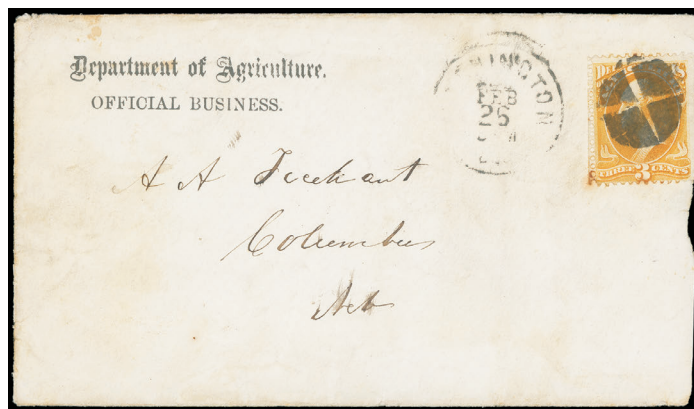 Department of Agriculture.
OFFICIAL BUSINESS.
INGTON
FEB
26
THREE 3 CENTS
A A
Columbus
Neb